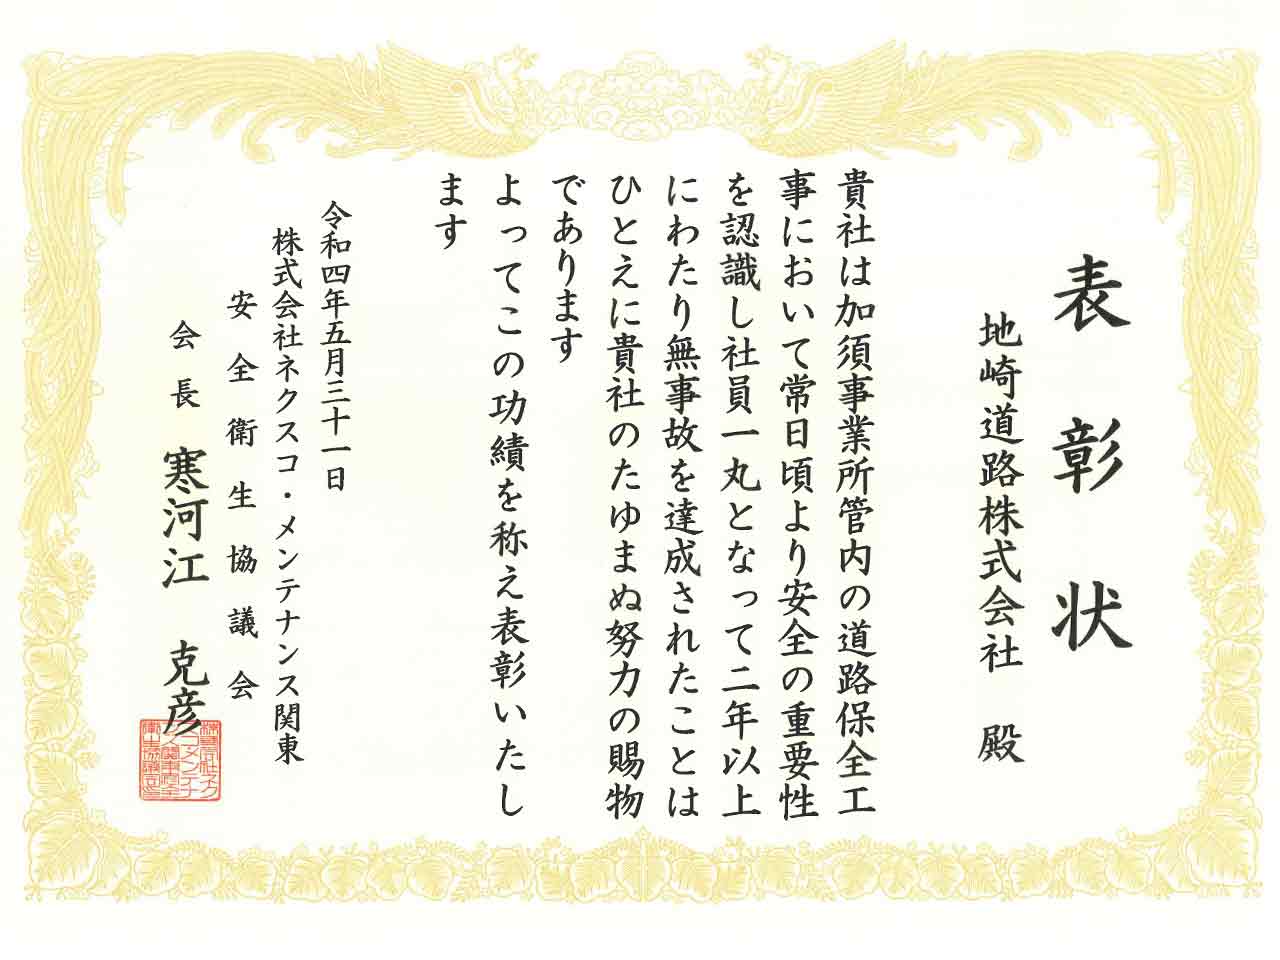 表彰状
地崎道路株式会社　殿
貴社は加須事業所管内の道路保全工
事において常日頃より安全の重要性
を認識し社員一丸となって二年以上
にわたり無事故を達成されたことは
ひとえに貴社のたゆまぬ努力の賜物
であります
よってこの功績を称え表彰いたし
ます
令和四年五月三十一日
株式会社ネクスコ・メンテナンス関東
安全衛生協議会
会長　寒河江　克彦